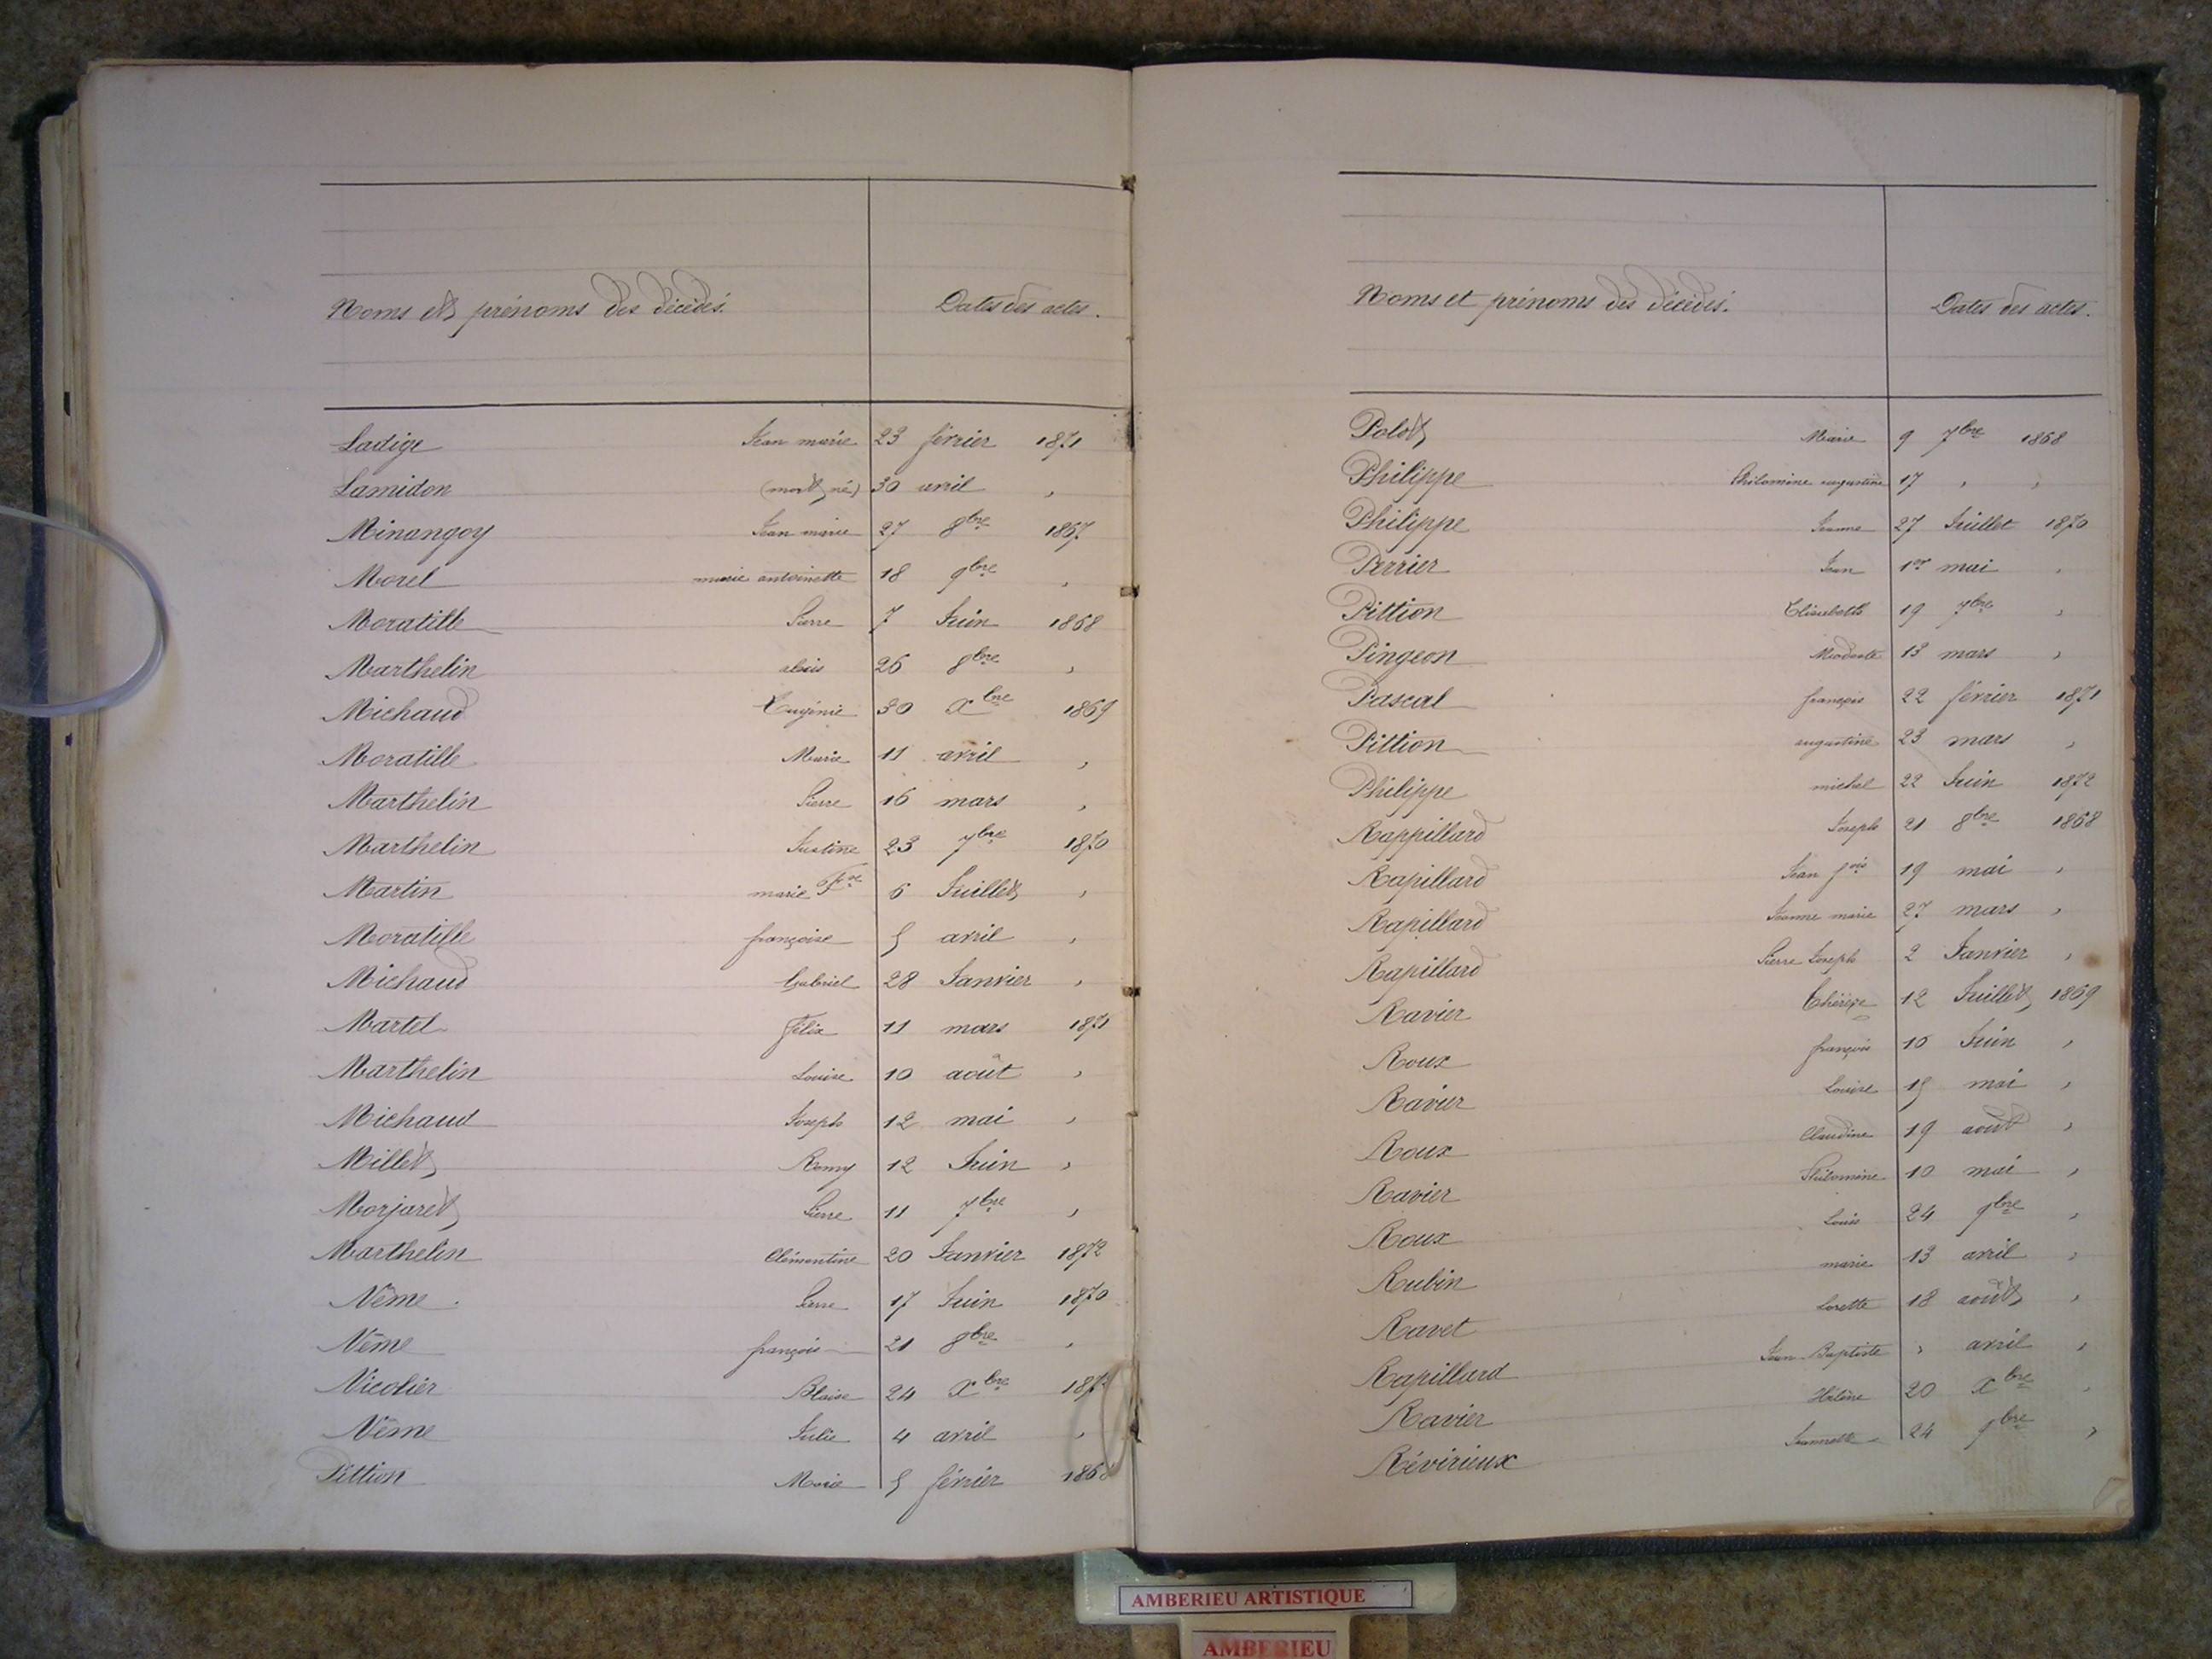 Noms et prénoms des décédés. Dates des actes.
Ladige Jean marie 23 février 1871
Lamidon (mort né) 30 avril "
Minangoy Jean marie 27 8bre 1867
Morel marie antoinette 18 9bre "
Moratille Pierre 7 Juin 1868
Marthelin alois 26 8bre "
Michaud Eugénie 30 Xbre 1869
Moratille Marie 11 avril "
Marthelin Pierre 16 mars "
Marthelin Justine 23 7bre 1870
Martin marie 6 Juillet "
Moratille françoise 5 avril "
Michaud Gabriel 28 Janvier "
Martel Félix 11 mars 1871
Marthelin Louise 10 août "
Michaud Joseph 12 mai "
Millet Remy 12 Juin "
Morjaret Pierre 11 7bre "
Marthelin Clémentine 20 Janvier 1872
Nême Pierre 17 Juin 1870
Nême françois 21 8bre "
Nicolier Blaise 24 Xbre
Nême Julie 4 avril "
Pittion Marie 5 février 1868
Noms et prénoms des décédés. Dates des actes.
Polot Marie 9 7bre 1868
Philippe Philomine augustine 17 " "
Philippe Jeanne 27 Juillet 1870
Perrier Jean 1er mai "
Pittion Elisabeth 19 7bre "
Pingeon Modeste 13 mars "
Pascal françois 22 février 1871
Pittion augustine 23 mars "
Philippe michel 22 Juin 1872
Rappillard Joseph 21 8bre 1868
Rapillard Jean fois 19 mai "
Rapillard Jeanne marie 27 mars "
Rapillard Pierre Joseph 2 Janvier "
Ravier Thérèse 12 Juillet 1869
Roux françois 10 Juin "
Ravier Louise 15 mai "
Roux Claudine 19 août "
Ravier Philomine 10 mai "
Roux Louis 24 9bre "
Rubin marie 13 avril "
Ravet Lorette 18 août "
Rapillard Jean Baptiste " avril "
Ravier Hélène 20 Xbre "
Révirieux Jeannette 24 9bre "
AMBERIEU ARTISTIQUE
AMBERIEU